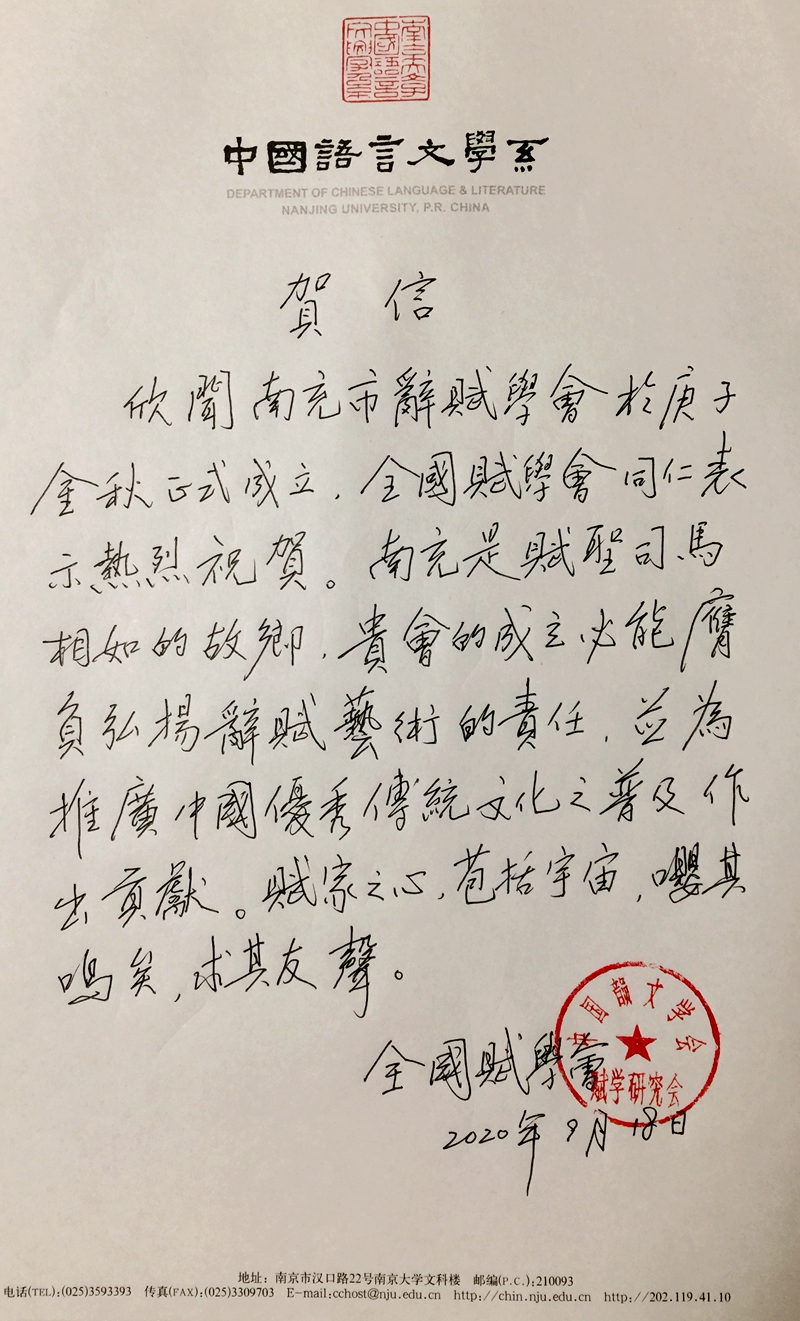 中國語言文學系
DEPARTMENT OF CHINESE LANGUAGE & LITERATURE
NANJING UNIVERSITY, P.R. CHINA
賀信
欣聞南充市辭賦學會於庚子
金秋正式成立，全國賦學會同仁表
示熱烈祝賀。南充是賦聖司馬
相如的故鄉，貴會的成立必能膺
負弘揚辭賦藝術的責任，並為
推廣中國優秀傳統文化之普及作
出貢獻。賦家之心，苞括宇宙，嚶其
鳴矣，求其友聲。
全國賦學會
2020年9月18日
賦学研究会
地址：南京市汉口路22号南京大学文科楼 邮编(P.C.):210093
电话(TEL):(025)3593393 传真(FAX):(025)3309703 E-mail:cchost@nju.edu.cn http://chin.nju.edu.cn http://202.119.41.10